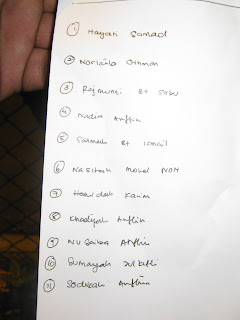 1 Hayati Samad
2 Norlaila Othman
3 Rajmunni Bt Sabu
4 Nadia Ariffin
5 Salmah Bt Ismail
6 Nasibah Mohd Noh
7 Karim
8 Khadijah Ariffin
9 Nusaiba Ariffin
10 Sumayyah Zulkifli
11 Ariffin